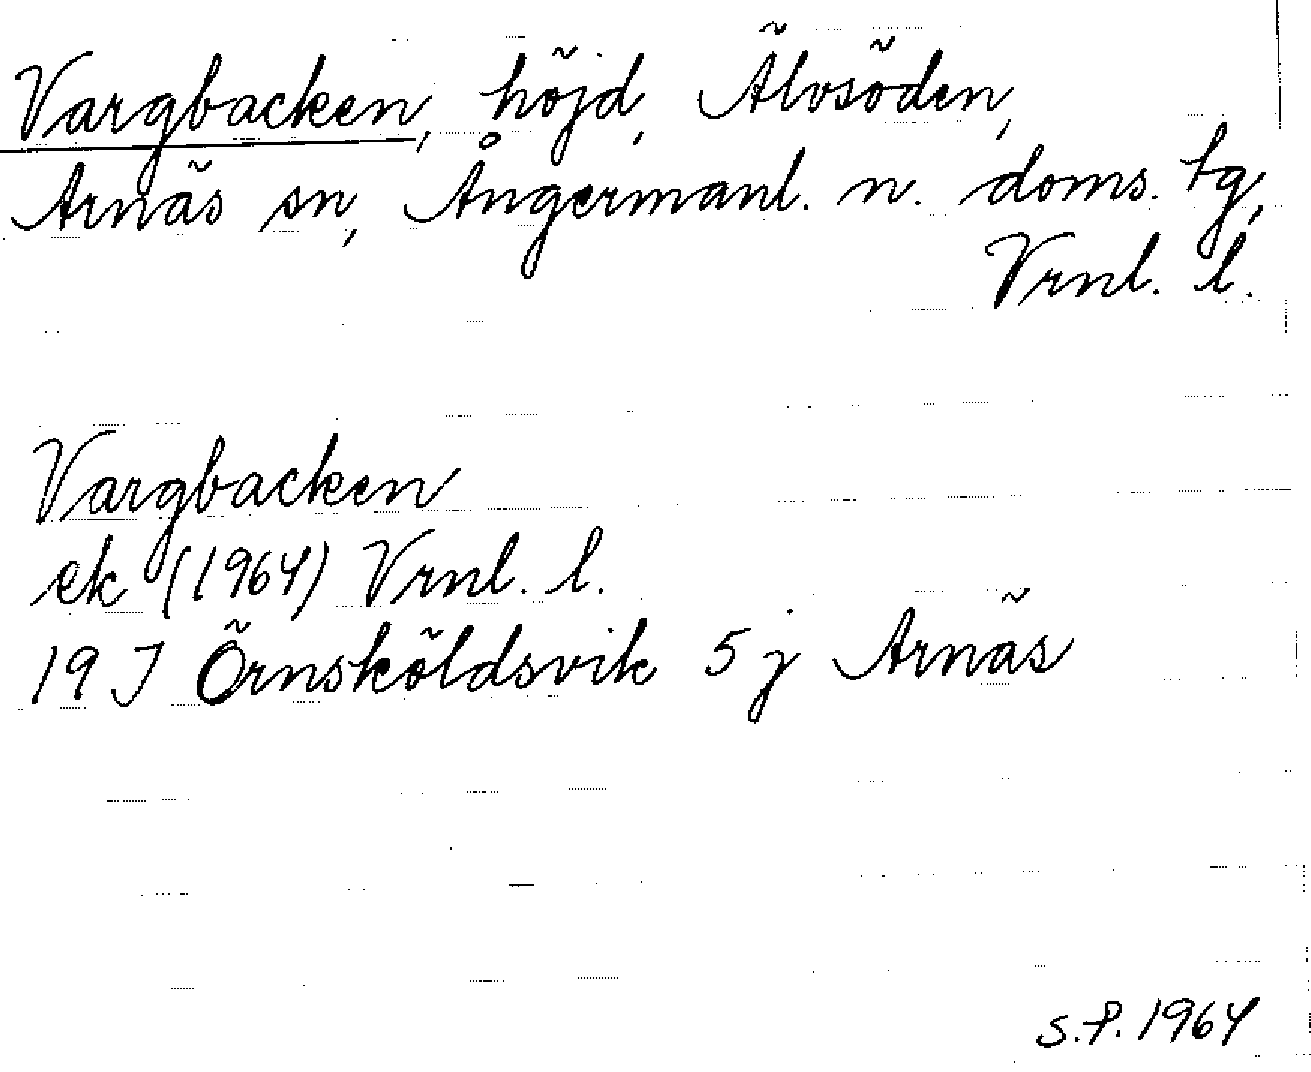 Vargbacken, höjd, Älvsöden,
Arnäs sn, Ångermanl. n. doms. tg,
Vrnl. l.
Vargbacken
ek (1964) Vrnl. l.
19 J Örnsköldsvik 5 j Arnäs
S.P. 1964